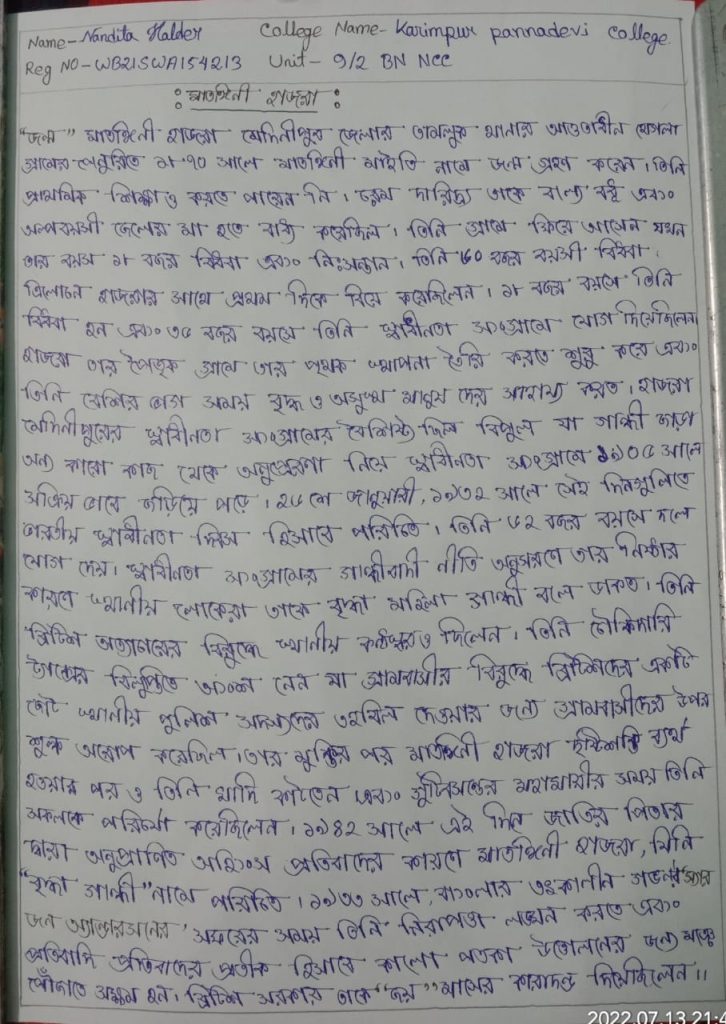 Name- Nandita Halder College Name- Karimpur pannadevi College.
Reg NO-WB21SWA154213 Unit- 9/2 BN NCC
: মাতঙ্গিনী হাজরা :
"জন্ম" মাতঙ্গিনী হাজরা মেদিনীপুর জেলার তামলুক থানার আওতাধীন হোগলা
গ্রামের ১৮৭০ সালে মাতঙ্গিনী মাইতি নামে জন্ম গ্রহণ করেন। তিনি
প্রাথমিক শিক্ষাও করতে পারেন নি। চরম দারিদ্র্য তাকে বাল্য বধূ এবং
অল্পবয়সী ছেলের মা হতে বাধ্য করেছিল। তিনি গ্রামে ফিরে আসেন যখন
তার বয়স ১৮ বছর বিধবা এবং নিঃসন্তান। তিনি ৬০ বছর বয়সী বিধবা
ত্রিলোচন হাজরার সাথে প্রথম দিকে বিয়ে করেছিলেন। ১৮ বছর বয়সে তিনি
বিধবা হন এবং ৩৫ বছর বয়সে তিনি স্বাধীনতা সংগ্রামে যোগ দিয়েছিলেন।
হাজরা তার পৈতৃক গ্রামে তার পৃথক স্থাপনা তৈরি করতে শুরু করে এবং
তিনি বেশির ভাগ সময় বৃদ্ধ ও অসুস্থ মানুষ দের সাহায্য করত। হাজরা
মেদিনীপুরের স্বাধীনতা সংগ্রামের বৈশিষ্ট্য ছিল বিপুলে যা গান্ধী ছাড়া
অন্য কারো কাছ থেকে অনুপ্রেরণা নিয়ে স্বাধীনতা সংগ্রামে ১৯০৫ সালে
সক্রিয় ভাবে জড়িয়ে পড়ে। ২৬ শে জানুয়ারী, ১৯৩২ সালে সেই দিনগুলিতে
ভারতীয় স্বাধীনতা দিবস হিসাবে পরিচিত। তিনি ৬২ বছর বয়সে দলে
যোগ দেয়। স্বাধীনতা সংগ্রামের গান্ধীবাদী নীতি অনুসরণে তার নিষ্ঠার
কারণে স্থানীয় লোকেরা তাকে বৃদ্ধা মহিলা গান্ধী বলে ডাকত। তিনি
ব্রিটিশ অত্যাচারের বিরুদ্ধে স্থানীয় কণ্ঠস্বরও ছিলেন। তিনি চৌকিদারি
ট্যাক্সের বিলুপ্তিতে অংশ নেন যা গ্রামবাসীর বিরুদ্ধে ব্রিটিশদের একটি
ছোট স্থানীয় পুলিশ সদস্যদের তহবিল দেওয়ার জন্য গ্রামবাসীদের উপর
শুল্ক আরোপ করেছিল। তার মুক্তির পর মাতঙ্গিনী হাজরা দৃষ্টিশক্তি ব্যর্থ
হওয়ার পর ও তিনি খাদি কাটতেন এবং গুটিবসন্তের মহামারীর সময় তিনি
সকলকে পরিচর্যা করেছিলেন। ১৯৪২ সালে এই দিন জাতির পিতার
দ্বারা অনুপ্রাণিত অহিংস প্রতিবাদের কারণে মাতঙ্গিনী হাজরা, যিনি
"বৃদ্ধা গান্ধী" নামে পরিচিত। ১৯৩৩ সালে, বাংলার তৎকালীন গভর্নর স্যার
জন অ্যান্ডারসনের সফরের সময় তিনি নিরাপত্তা লঙ্ঘন করতে এবং
প্রতিবাদি প্রতিবাদের প্রতীক হিসাবে কালো পতকা উত্তোলনের জন্য মঞ্চে
পৌঁছাতে সক্ষম হন। ব্রিটিশ সরকার তাকে "ছয়" মাসের কারাদন্ড দিয়েছিলেন।।
2022.07.13 21:4